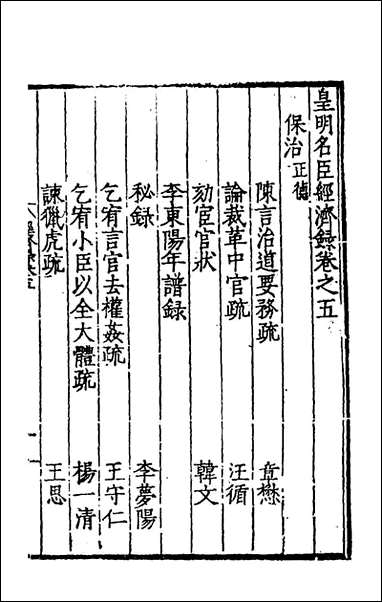 皇明名臣經濟錄卷之五
保治正德
陳言治道要務疏 章懋
論裁革中官疏 汪循
劾宦官狀 韓文
李東陽年譜錄
秘錄 李夢陽
乞宥言官去權姦疏 王守仁
乞宥小臣以全大體疏 楊一清
諫獵虎疏 王思